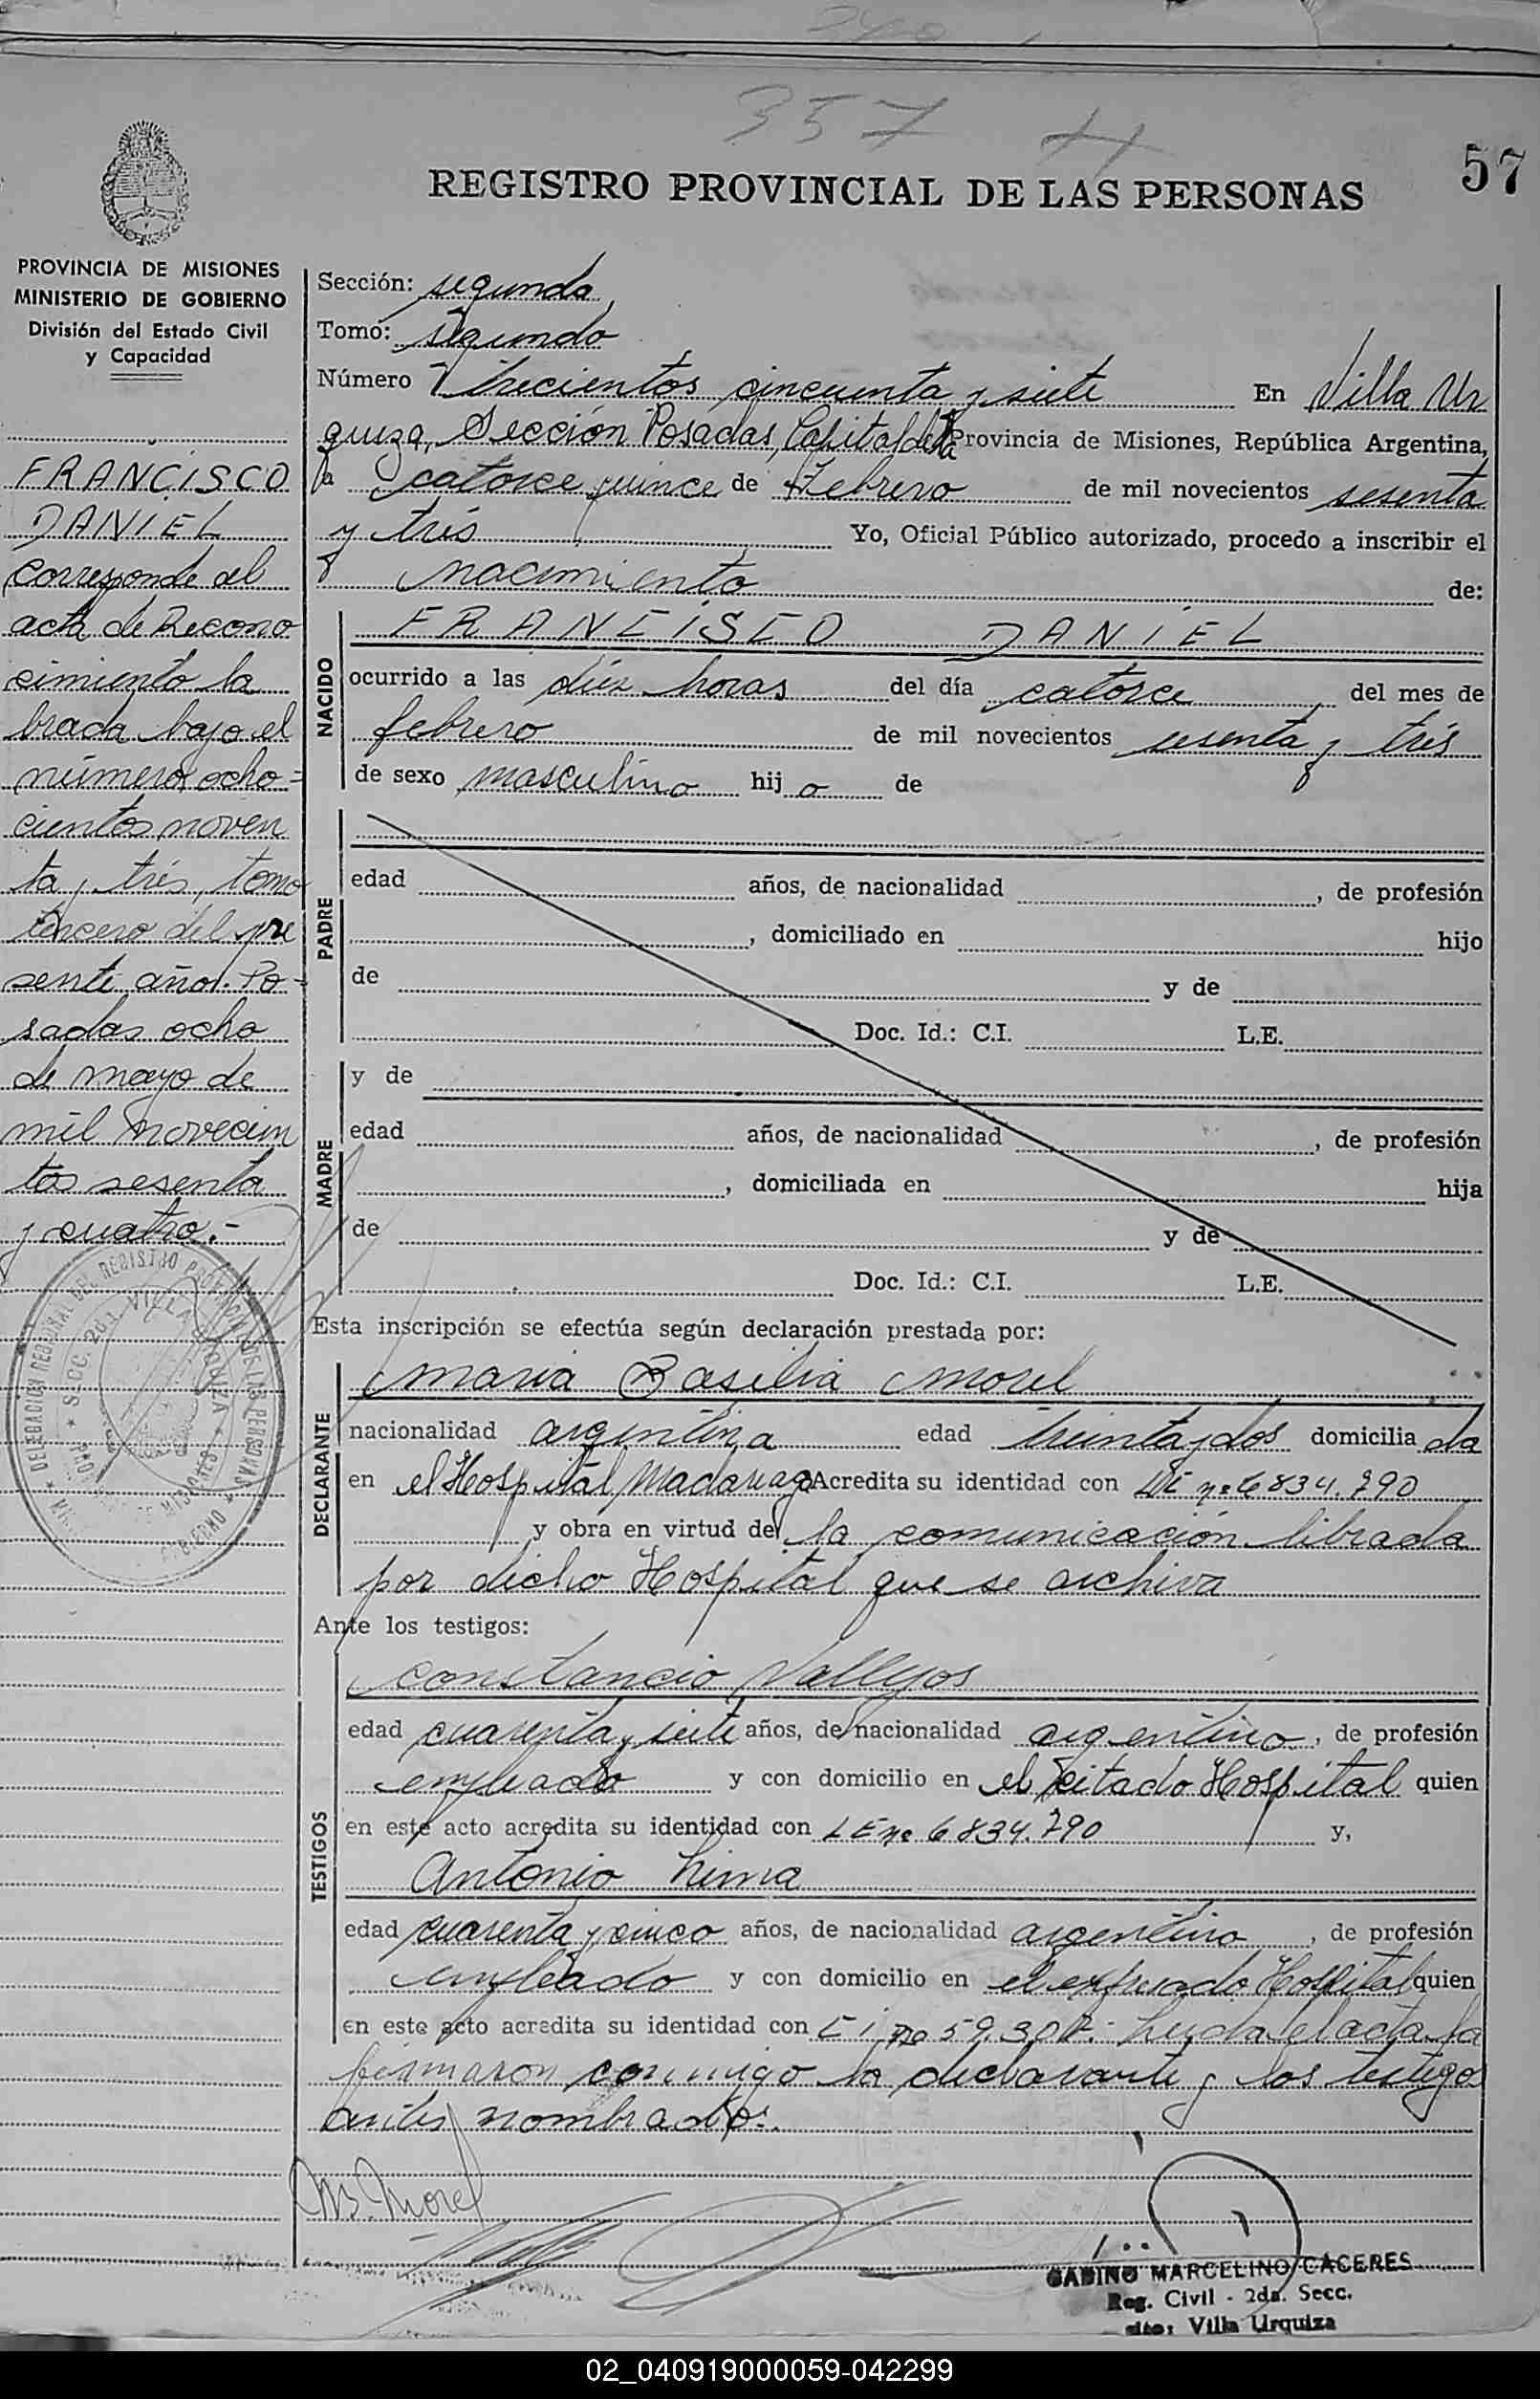 357
57
REGISTRO PROVINCIAL DE LAS PERSONAS
PROVINCIA DE MISIONES
MINISTERIO DE GOBIERNO
División del Estado Civil
y Capacidad
FRANCISCO
DANIEL
Corresponde al
acta de Recono
cimiento la
brada bajo el
número ocho=
cientos noven
ta y trés, tomo
tercero del pre
sente año. Po-
sadas ocho
de mayo de
mil novecien
tos sesenta
y cuatro.-
DELEGACION REGIONAL DEL REGISTRO PROVINCIAL DE LAS PERSONAS
SECC. 2da. VILLA URQUIZA
Sección: segunda
Tomo: segundo
Número trecientos cincuenta y siete En Villa Ur
quiza, Sección Posadas, Capital de la Provincia de Misiones, República Argentina,
a catorce quince de Febrero de mil novecientos sesenta
y trés Yo, Oficial Público autorizado, procedo a inscribir el
nacimiento de:
NACIDO
FRANCISCO DANIEL
ocurrido a las diéz horas del día catorce del mes de
febrero de mil novecientos sesenta y trés
de sexo masculino hijo de
PADRE
edad años, de nacionalidad , de profesión
, domiciliado en hijo
de y de
Doc. Id.: C.I. L.E.
MADRE
y de
edad años, de nacionalidad , de profesión
, domiciliada en hija
de y de
Doc. Id.: C.I. L.E.
Esta inscripción se efectúa según declaración prestada por:
DECLARANTE
maria Basilia morel
nacionalidad argentina edad treinta y dos domiciliada
en el Hospital Madariaga Acredita su identidad con nº 6834.790
y obra en virtud de la comunicación librada
por dicho Hospital que se archiva
Ante los testigos:
TESTIGOS
constancio Vallejos
edad cuarenta y siete años, de nacionalidad argentino, de profesión
empleado y con domicilio en el citado Hospital quien
en este acto acredita su identidad con LE nº 6834.790 y,
Antonio Lima
edad cuarenta y cinco años, de nacionalidad argentino, de profesión
empleado y con domicilio en el expresado Hospital quien
en este acto acredita su identidad con nº Leyda el acta la
firmaron conmigo la declarante y los testigos
antes nombrados.
M.B. Morel
GABINO MARCELINO CACERES
Reg. Civil - 2da. Secc.
Villa Urquiza
02_040919000059-042299